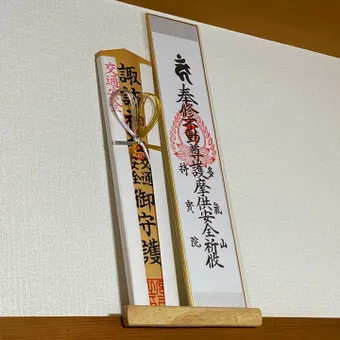 交通安全
諏訪神
交通
安全
御守護
奉修不動尊護摩供安全祈攸
多氣山
持寳院